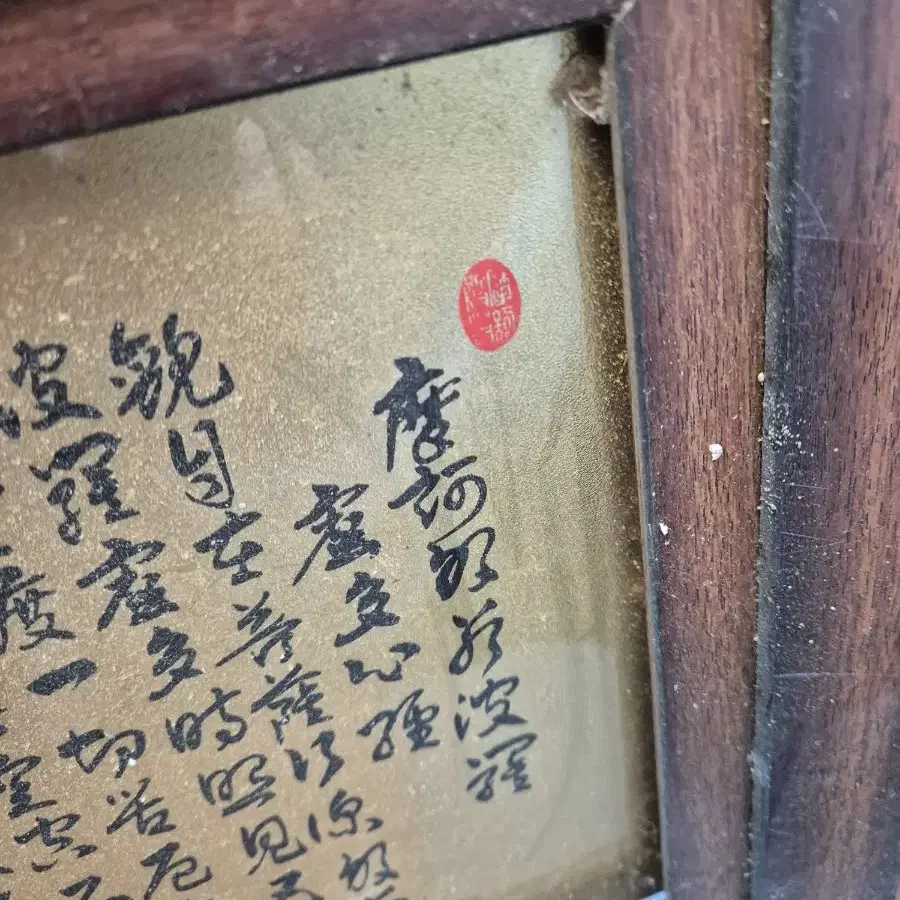 摩訶般若波羅
蜜多心經
觀自在菩薩行深般
波羅蜜多時照見五
度一切苦厄
空空